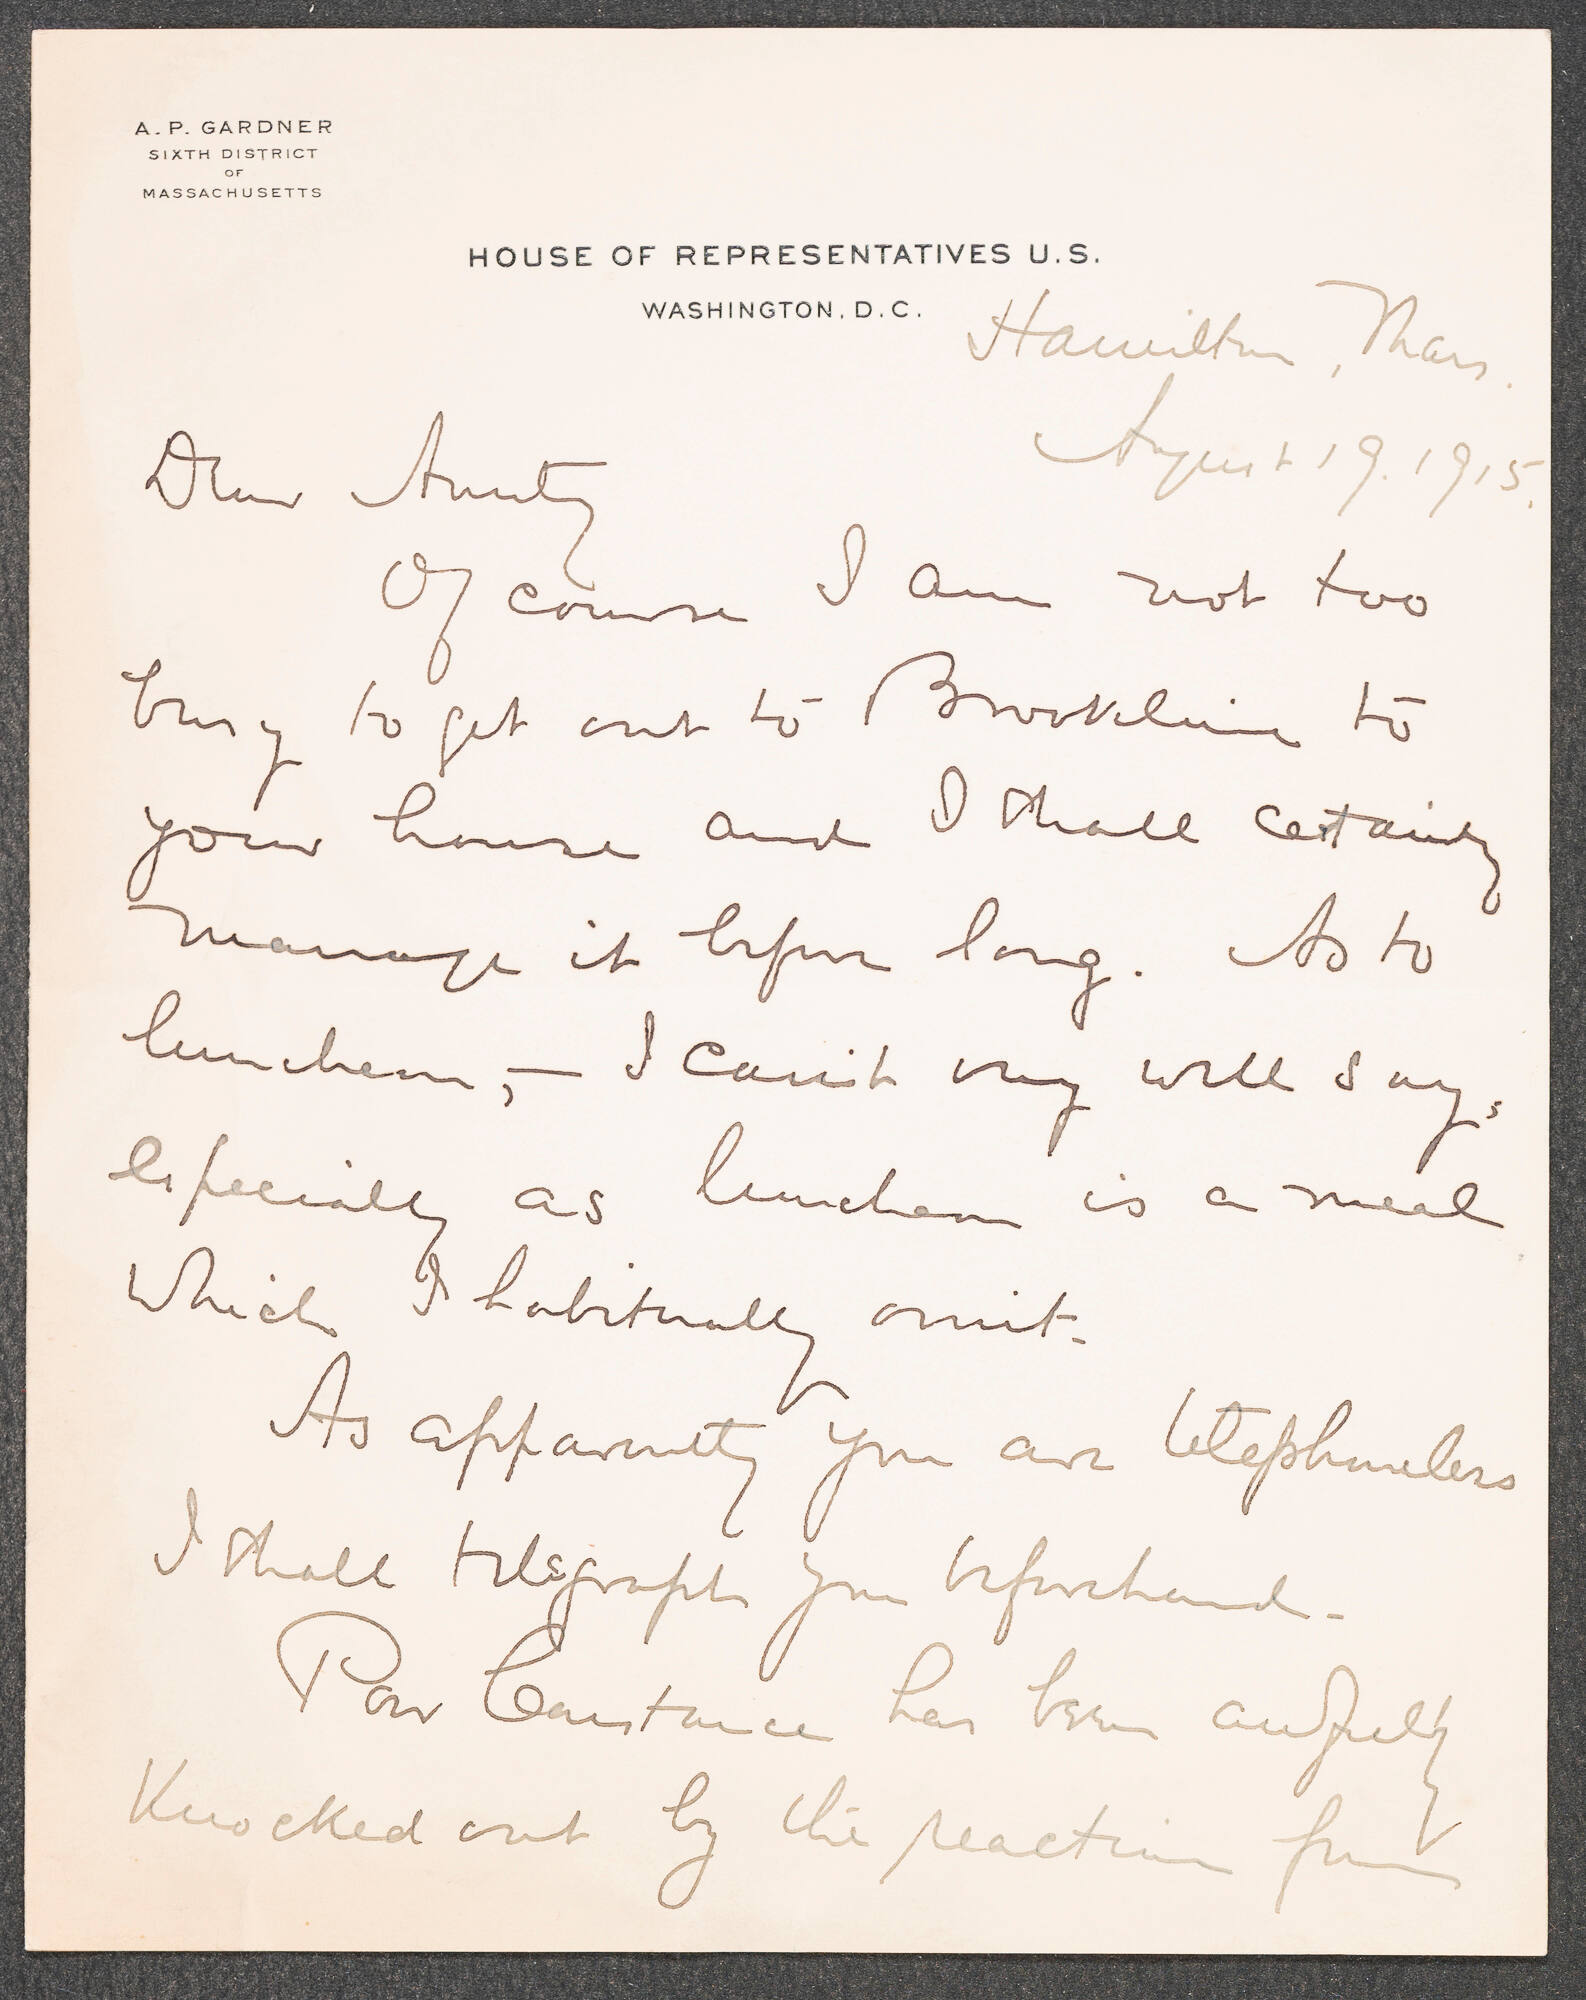 A. P. GARDNER
SIXTH DISTRICT
OF
MASSACHUSETTS
HOUSE OF REPRESENTATIVES U.S.
WASHINGTON, D.C.
Hamilton, Mass.
August 19. 1915.
Dear Aunty
Of course I am not too
busy to get out to Brookline to
your house and I shall certainly
manage it before long. As to
luncheon, — I can't very well say,
especially as luncheon is a meal
which I habitually omit.
As apparently you are telephoneless
I shall telegraph you beforehand.
Poor Constance has been awfully
knocked out by the reaction from